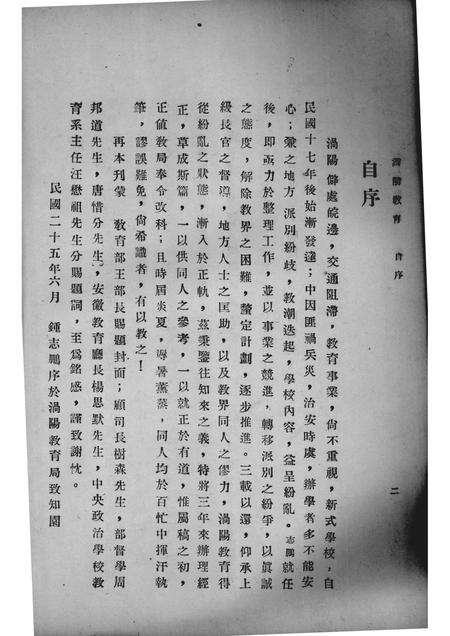 渦陽教育　自序
二
自序
渦陽僻處皖邊，交通阻滯，教育事業，尙不重視，新式學校，自
民國十七年後始漸發達；中因匪禍兵災，治安時虞，辦學者多不能安
心；兼之地方派別紛歧，教潮迭起，學校內容，益呈紛亂。志鵬就任
後，卽亟力於整理工作，並以事業之競進，轉移派別之紛爭，以眞誠
之態度，解除教界之困難，釐定計劃，逐步推進。三載以還，仰承上
級長官之督導，地方人士之匡助，以及教界同人之僇力，渦陽教育得
從紛亂之狀態，漸入於正軌，茲秉鑒往知來之義，特將三年來辦理經
正，草成斯篇，一以供同人之參考，一以就正於有道，惟屬稿之初，
正値教局奉令改科；且時屆炎夏，溽暑薰蒸，同人均於百忙中揮汗執
筆，謬誤難免，尙希識者，有以教之！
再本刋蒙　教育部王部長賜題封面；顧司長樹森先生，部督學周
邦道先生，唐惜分先生，安徽教育廳長楊思默先生，中央政治學校教
育系主任汪懋祖先生分賜題詞，至爲銘感，謹致謝忱。
民國二十五年六月　鍾志鵬序於渦陽教育局致知園